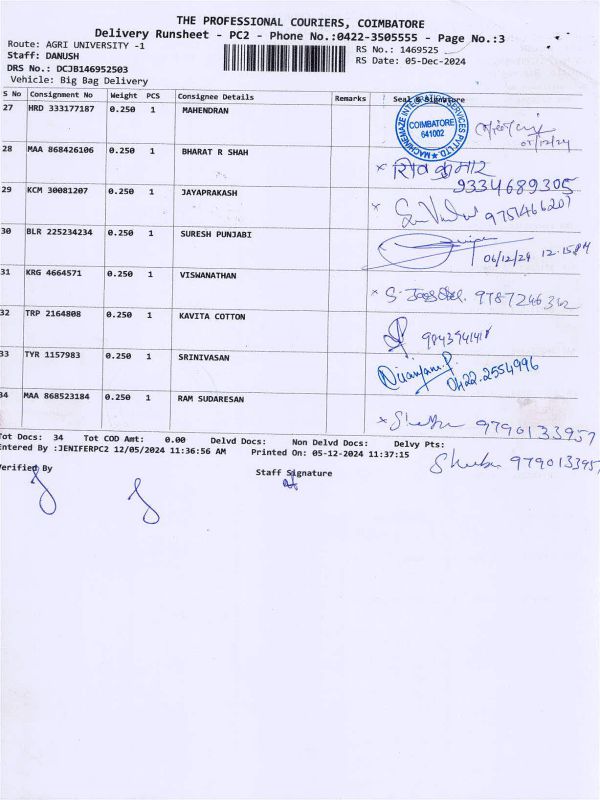 THE PROFESSIONAL COURIERS, COIMBATORE
Delivery Runsheet - PC2 - Phone No.:0422-3505555 - Page No.:3
Route: AGRI UNIVERSITY -1
RS No.: 1469525
Staff: DANUSH
RS Date: 05-Dec-2024
DRS No.: DCJB146952503
Vehicle: Big Bag Delivery
S No Consignment No Weight PCS Consignee Details Remarks Seal & Signature
27 HRD 333177187 0.250 1 MAHENDRAN
MACHINEMAZE INTEGRATION SERVICES PVT LTD
COIMBATORE
641002
05/12/24
28 MAA 868426106 0.250 1 BHARAT R SHAH
x शिव कुमार
9334689305
29 KCM 30081207 0.250 1 JAYAPRAKASH
x 9751466207
30 BLR 225234234 0.250 1 SURESH PUNJABI
06/12/24 12.15PM
31 KRG 4664571 0.250 1 VISWANATHAN
x S. 9787246362
32 TRP 2164808 0.250 1 KAVITA COTTON
9843941418
33 TYR 1157983 0.250 1 SRINIVASAN
Niranjani.P.
0422.2554996
34 MAA 868523184 0.250 1 RAM SUDARESAN
x 9790133957
Tot Docs: 34 Tot COD Amt: 0.00 Delvd Docs: Non Delvd Docs: Delvy Pts:
Entered By :JENIFERPC2 12/05/2024 11:36:56 AM Printed On: 05-12-2024 11:37:15
979013395
Verified By
Staff Signature